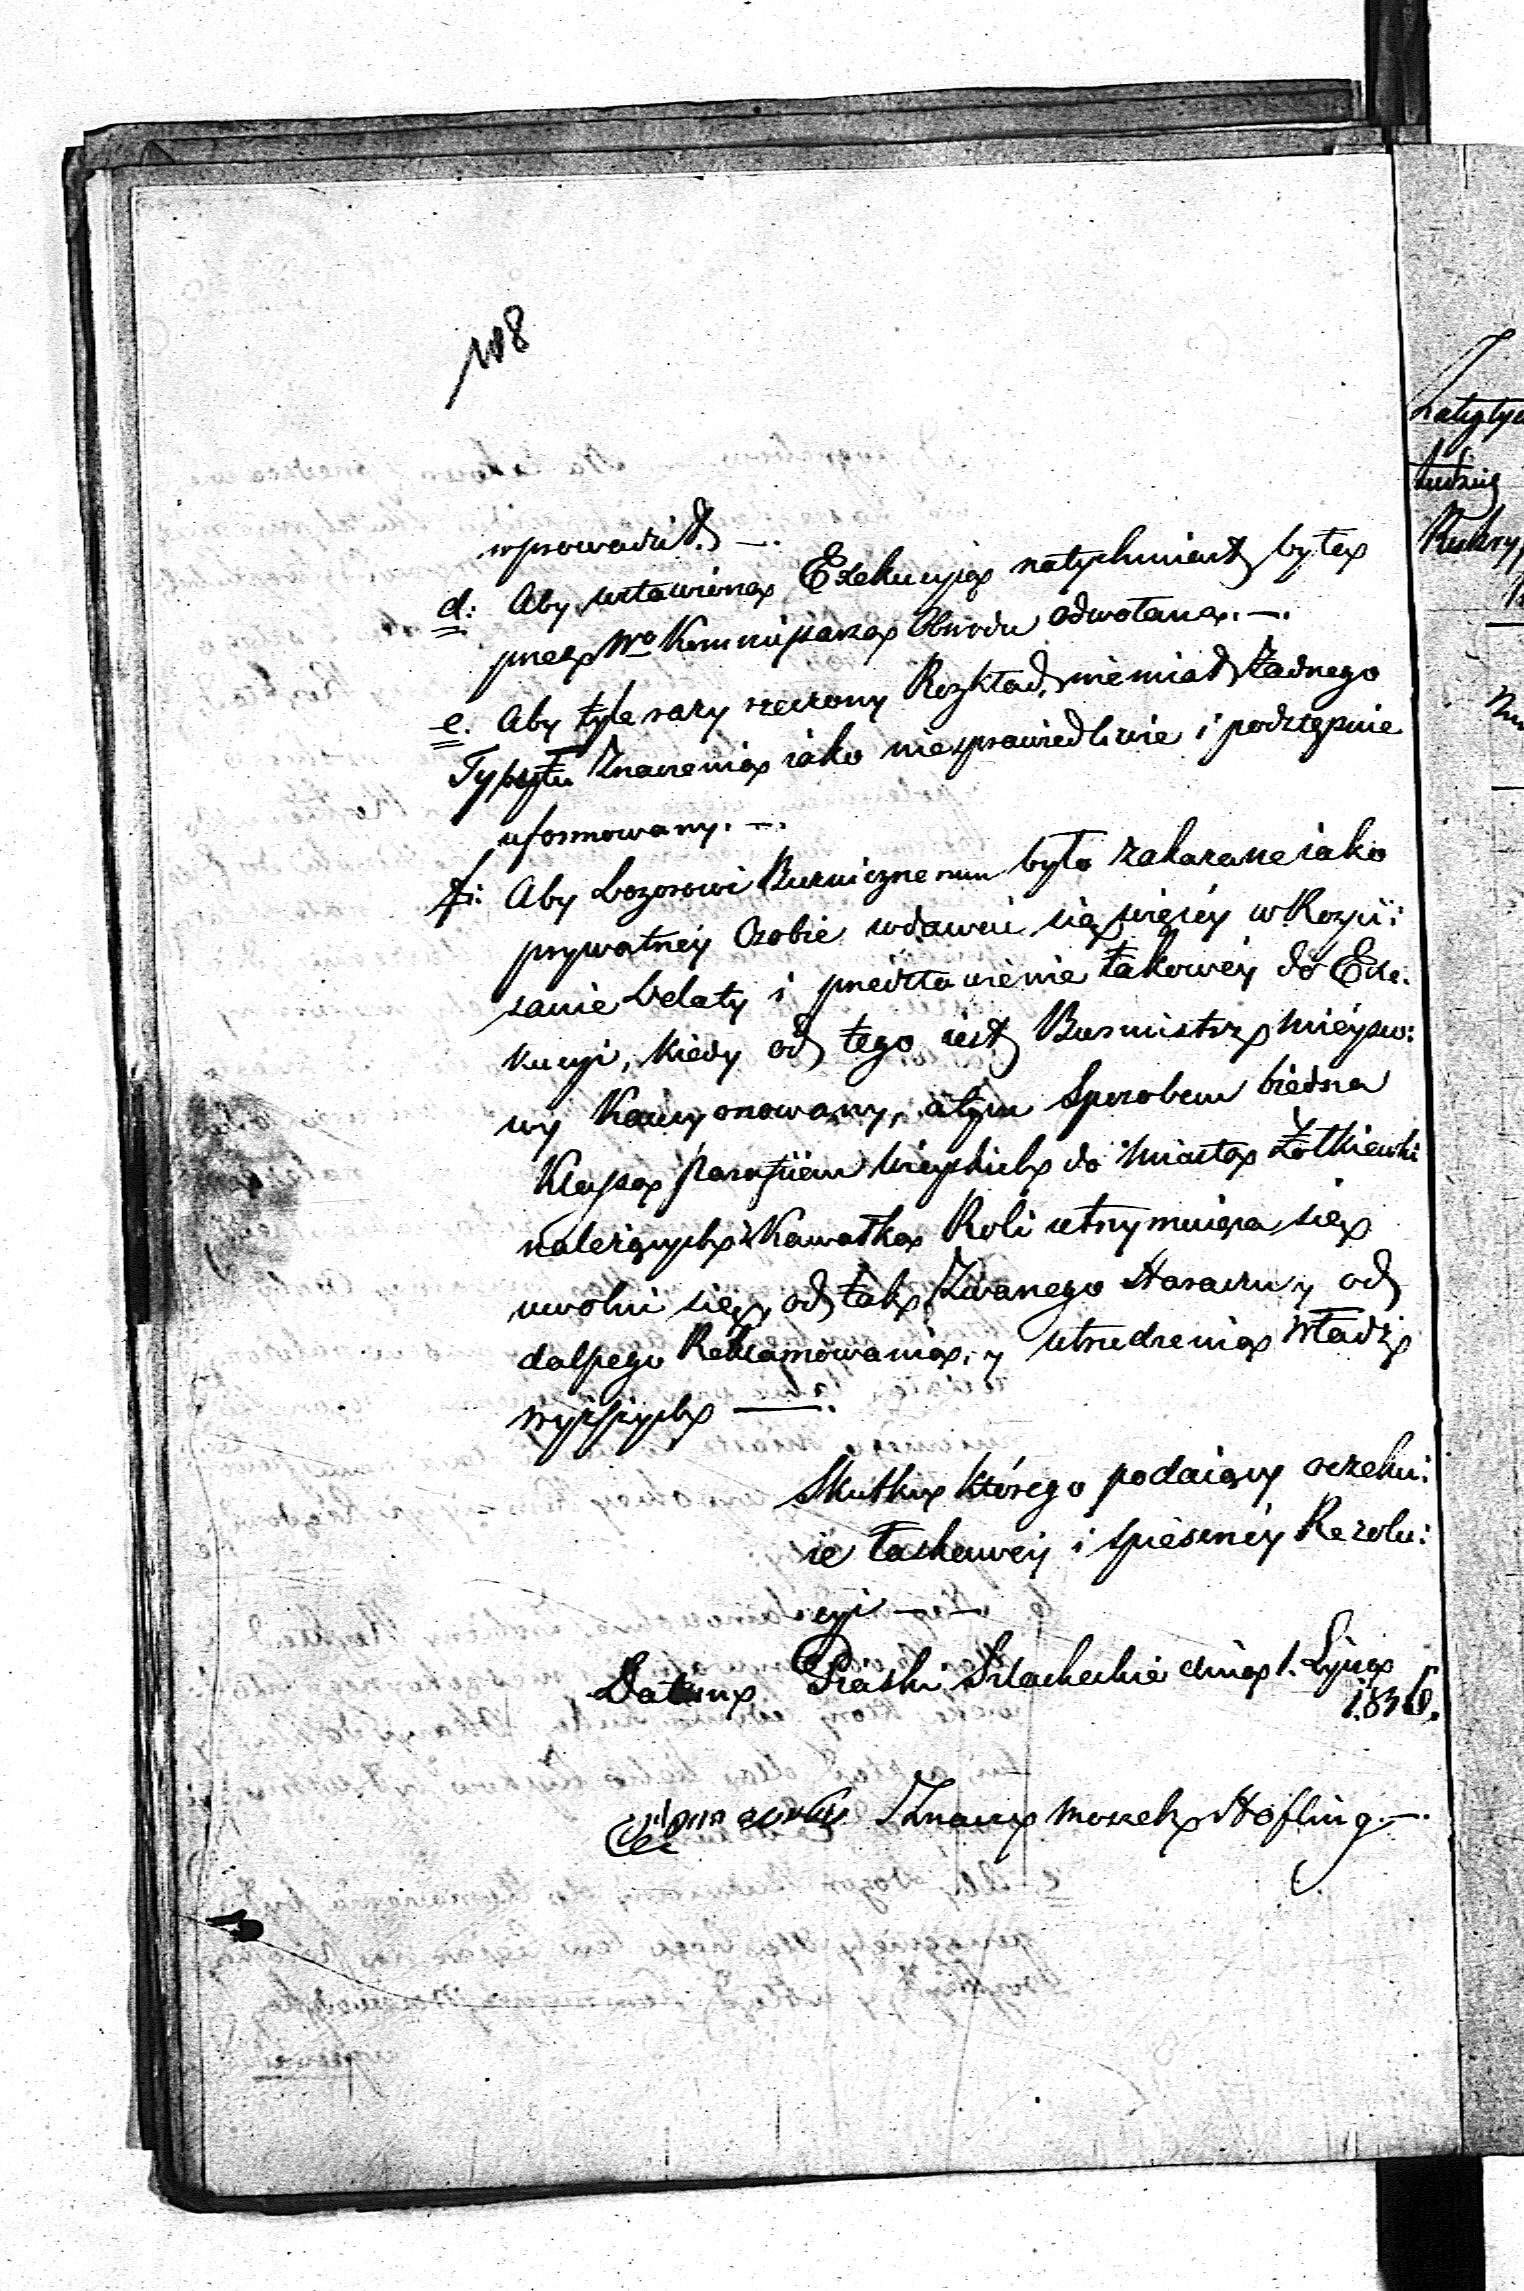 108
wprowadził. —.
d: Aby wstawiona Exekucyia natychmiast była
przez Wo Kommissarza Obwodu odwołana. —.
e. Aby tyle razy rzeczony Rozkład, niemiał Żadnego
Tytułu Znaczenia iako niesprawiedliwie i podstępnie
uformowany. —.
f: Aby Dozorowi Bużnicznemu było zakazane iako
prywatney Osobie wdawać się więcey w Rozpi:
sanie Składty i przedstawienie takowey do Exe:
kucyi, kiedy od tego iest Burmistrz Mieysco:
wy Kaucyonowany, a tym Sposobem biedna
Klassa Parafiian Wieyskich do Miasta Żółkiewki
należących z Kawałka Roli utrzymuiąca się
uwolni się, od tak Zwanego Haraczu, y od
dalszego Reklamowania, y utrudzenia Władz
wyższych —.
Skutku którego podaiący oczeku:
ie łaskawey i śpieszney Rezolu:
cyi — —
Datum Piaski Szlacheckie dnia 1. Lipca
183
Znaczy Moszek Hofling. —.